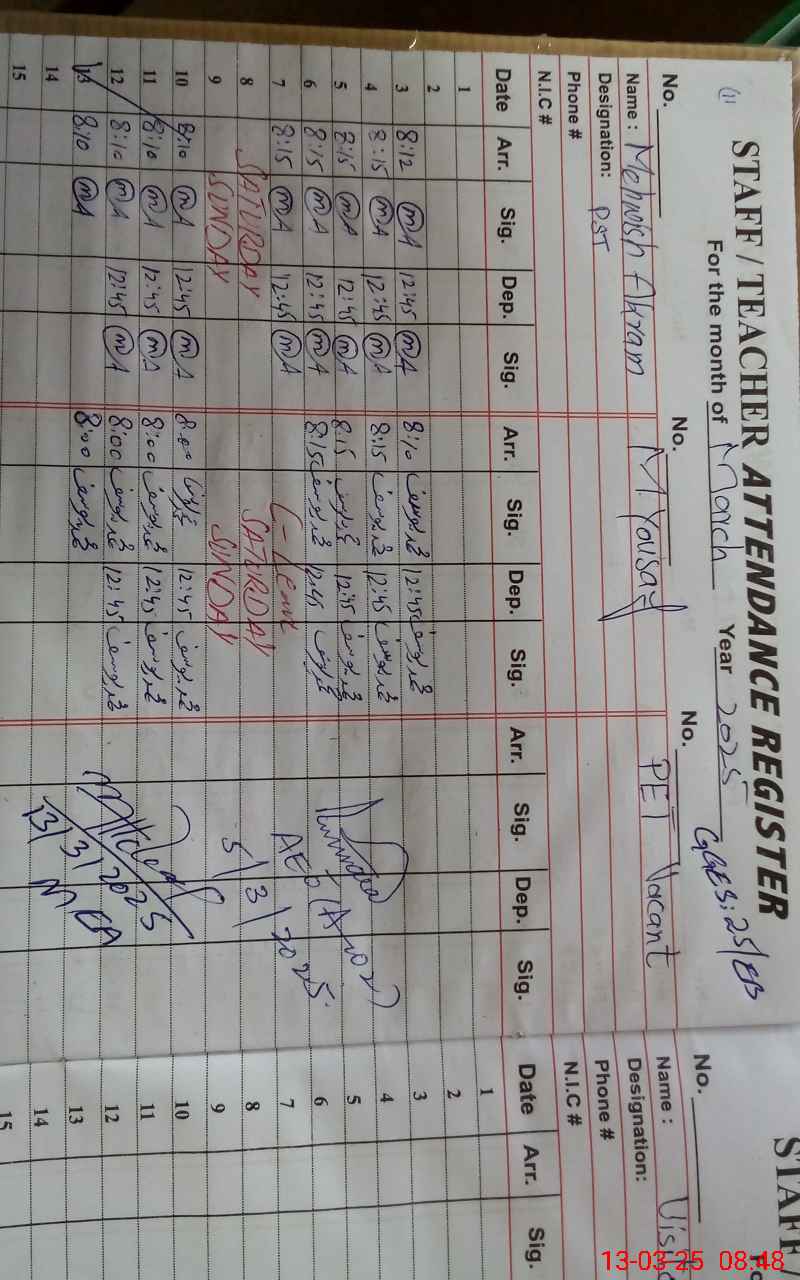 (1)
STAFF / TEACHER ATTENDANCE REGISTER
For the month of March Year 2025 GGES: 25/EB
No. No. No.
Name : Mehwish Akram M. Yousaf PET Vacant
Designation: PST
Phone #
N.I.C #
Date Arr. Sig. Dep. Sig. Arr. Sig. Dep. Sig. Arr. Sig. Dep. Sig.
1
2
3 8:12 MA 12:45 MA 8:10 12:45
4 8:15 MA 12:45 MA 8:15 12:45
5 8:15 MA 12:45 MA 8:15 12:45
6 8:15 MA 12:45 MA 8:15 12:45
7 8:15 MA 12:45 MA C-Leave
8 SATURDAY SATURDAY
9 SUNDAY SUNDAY
10 8:10 MA 12:45 MA 8:00 12:45
11 8:10 MA 12:45 MA 8:00 12:45
12 8:10 MA 12:45 MA 8:00 12:45
13 8:10 MA 8:00
14
15
AEO
5/3/2025
13/3/2025
MEA
STAFF /
No.
Name :
Designation:
Phone #
N.I.C #
Date Arr. Sig.
1
2
3
4
5
6
7
8
9
10
11
12
13
14
15
13-03-25 08:48